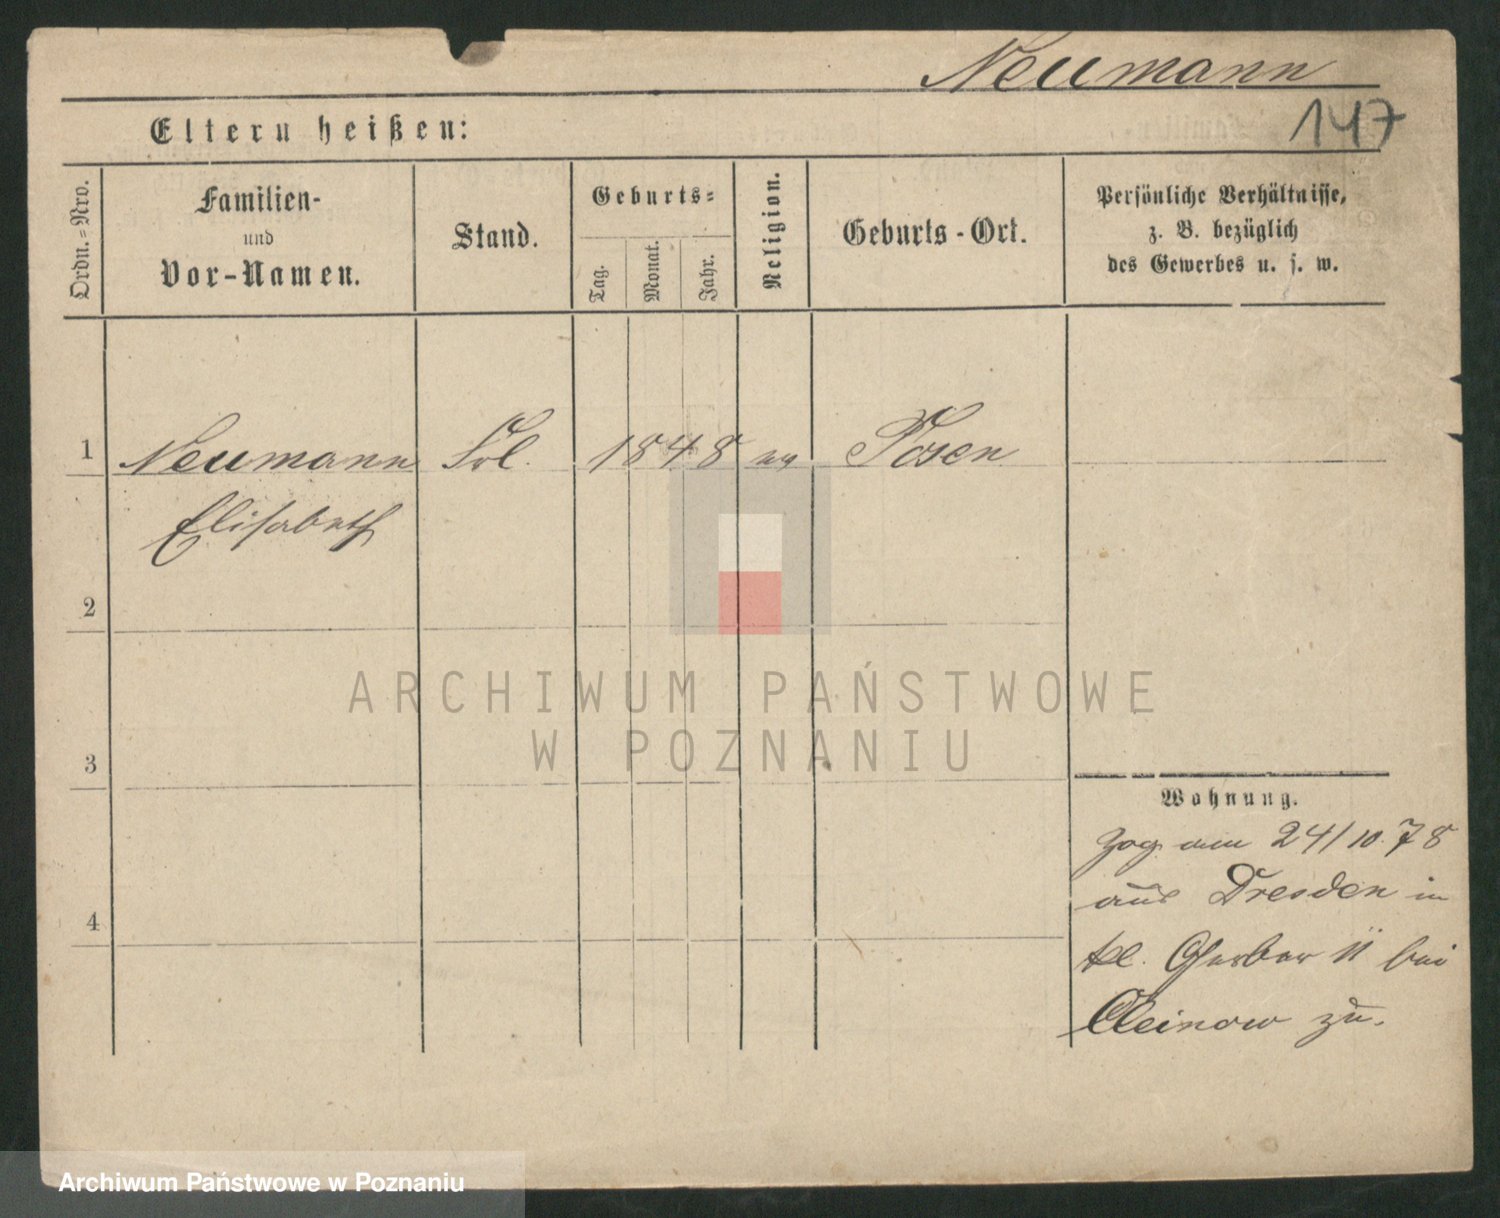 Neumann
147
Eltern heißen:
Ordn.-Nro.
Familien-
und
Vor-Namen.
Stand.
Geburts-
Tag.
Monat.
Jahr.
Religion.
Geburts-Ort.
Persönliche Verhältnisse,
z. B. bezüglich
des Gewerbes u. s. w.
1
Neumann
Frl.
1848
Posen
Elisabeth
2
3
4
ARCHIWUM PAŃSTWOWE
W POZNANIU
Wohnung.
zog am 24/10.78
aus Dresden in
kl. Gerber 11 bei
zu.
Archiwum Państwowe w Poznaniu